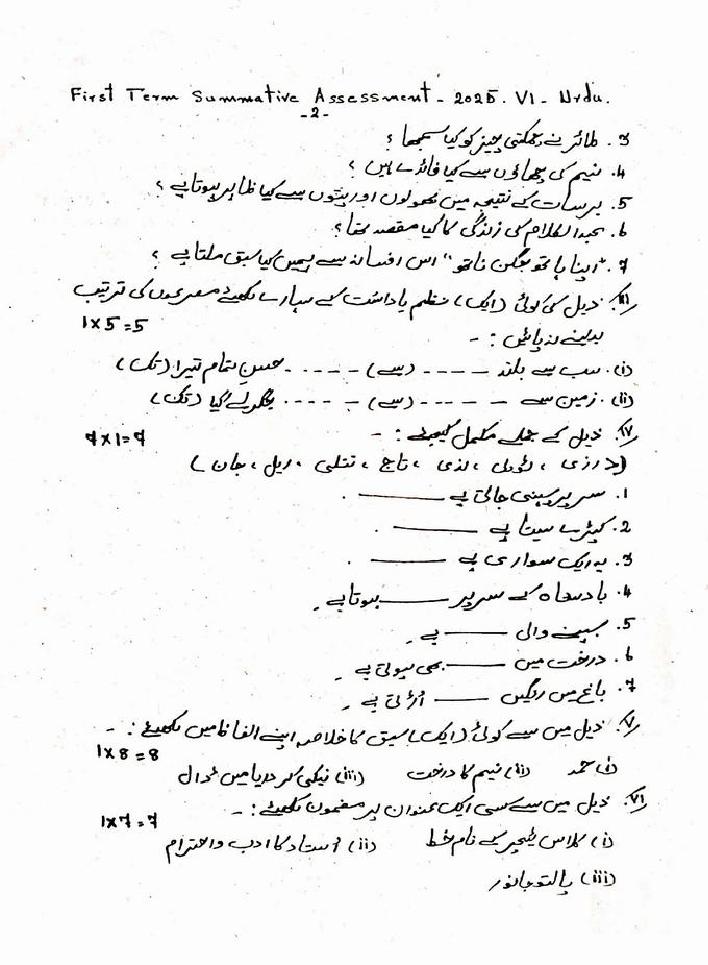 First Term Summative Assessment - 2025. VI - Urdu.
-2-
3. طائر نے چمکتی چیز کو کیا سمجھا ؟
4. نیم کی چھاؤں سے کیا فائدے ہیں ؟
5. برسات کے نتیجہ میں پھولوں اور پتوں سے کیا ظاہر ہوتا ہے ؟
6. عبدالکلام کی زندگی کا کیا مقصد تھا ؟
7. "اپنا ہاتھ جگن ناتھ" اس افسانہ سے ہمیں کیا سبق ملتا ہے ؟
III. ذیل کی کوئی (ایک) نظم یاداشت کے سہارے لکھئے مصرعوں کی ترتیب
بدلنے نہ پائیں :-
1x5=5
(i). سب سے بلند ---- (سے) ---- حسنِ تمام تیرا (تک)
(ii). زمین سے ---- (سے) ---- بگولے گیا (تک)
IV. ذیل کے جملے مکمل کیجئے :-
7x1=7
(درزی ، ندی ، تاج ، تتلی ، ریل ، جان)
1. سر پر پہنی جاتی ہے ______ .
2. کپڑے سیتا ہے ______ .
3. یہ ایک سواری ہے ______ .
4. بادشاہ کے سر پر ______ ہوتا ہے .
5. بہنے والی ______ ہے .
6. درخت میں ______ بھی ہوتی ہے .
7. باغ میں رنگیں ______ اڑتی ہے .
V. ذیل میں سے کوئی (ایک) سبق کا خلاصہ اپنے الفاظ میں لکھئے :-
1x8=8
(i) حمد (ii) نیم کا درخت (iii) نیکی کر دریا میں ڈال
VI. ذیل میں سے کسی ایک عنوان پر مضمون لکھئے :-
1x7=7
(i) کلاس ٹیچر کے نام خط (ii) استاد کا ادب و احترام
(iii) پالتو جانور